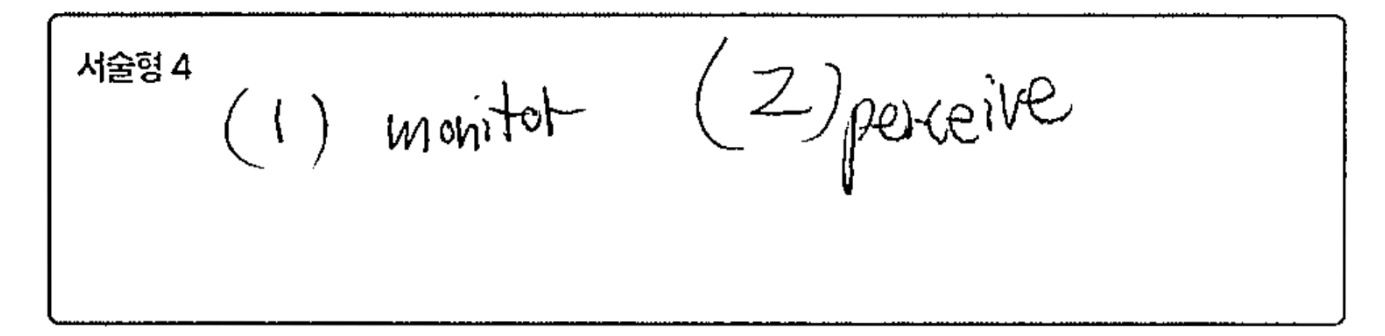 서술형 4
(1) monitor (2) perceive